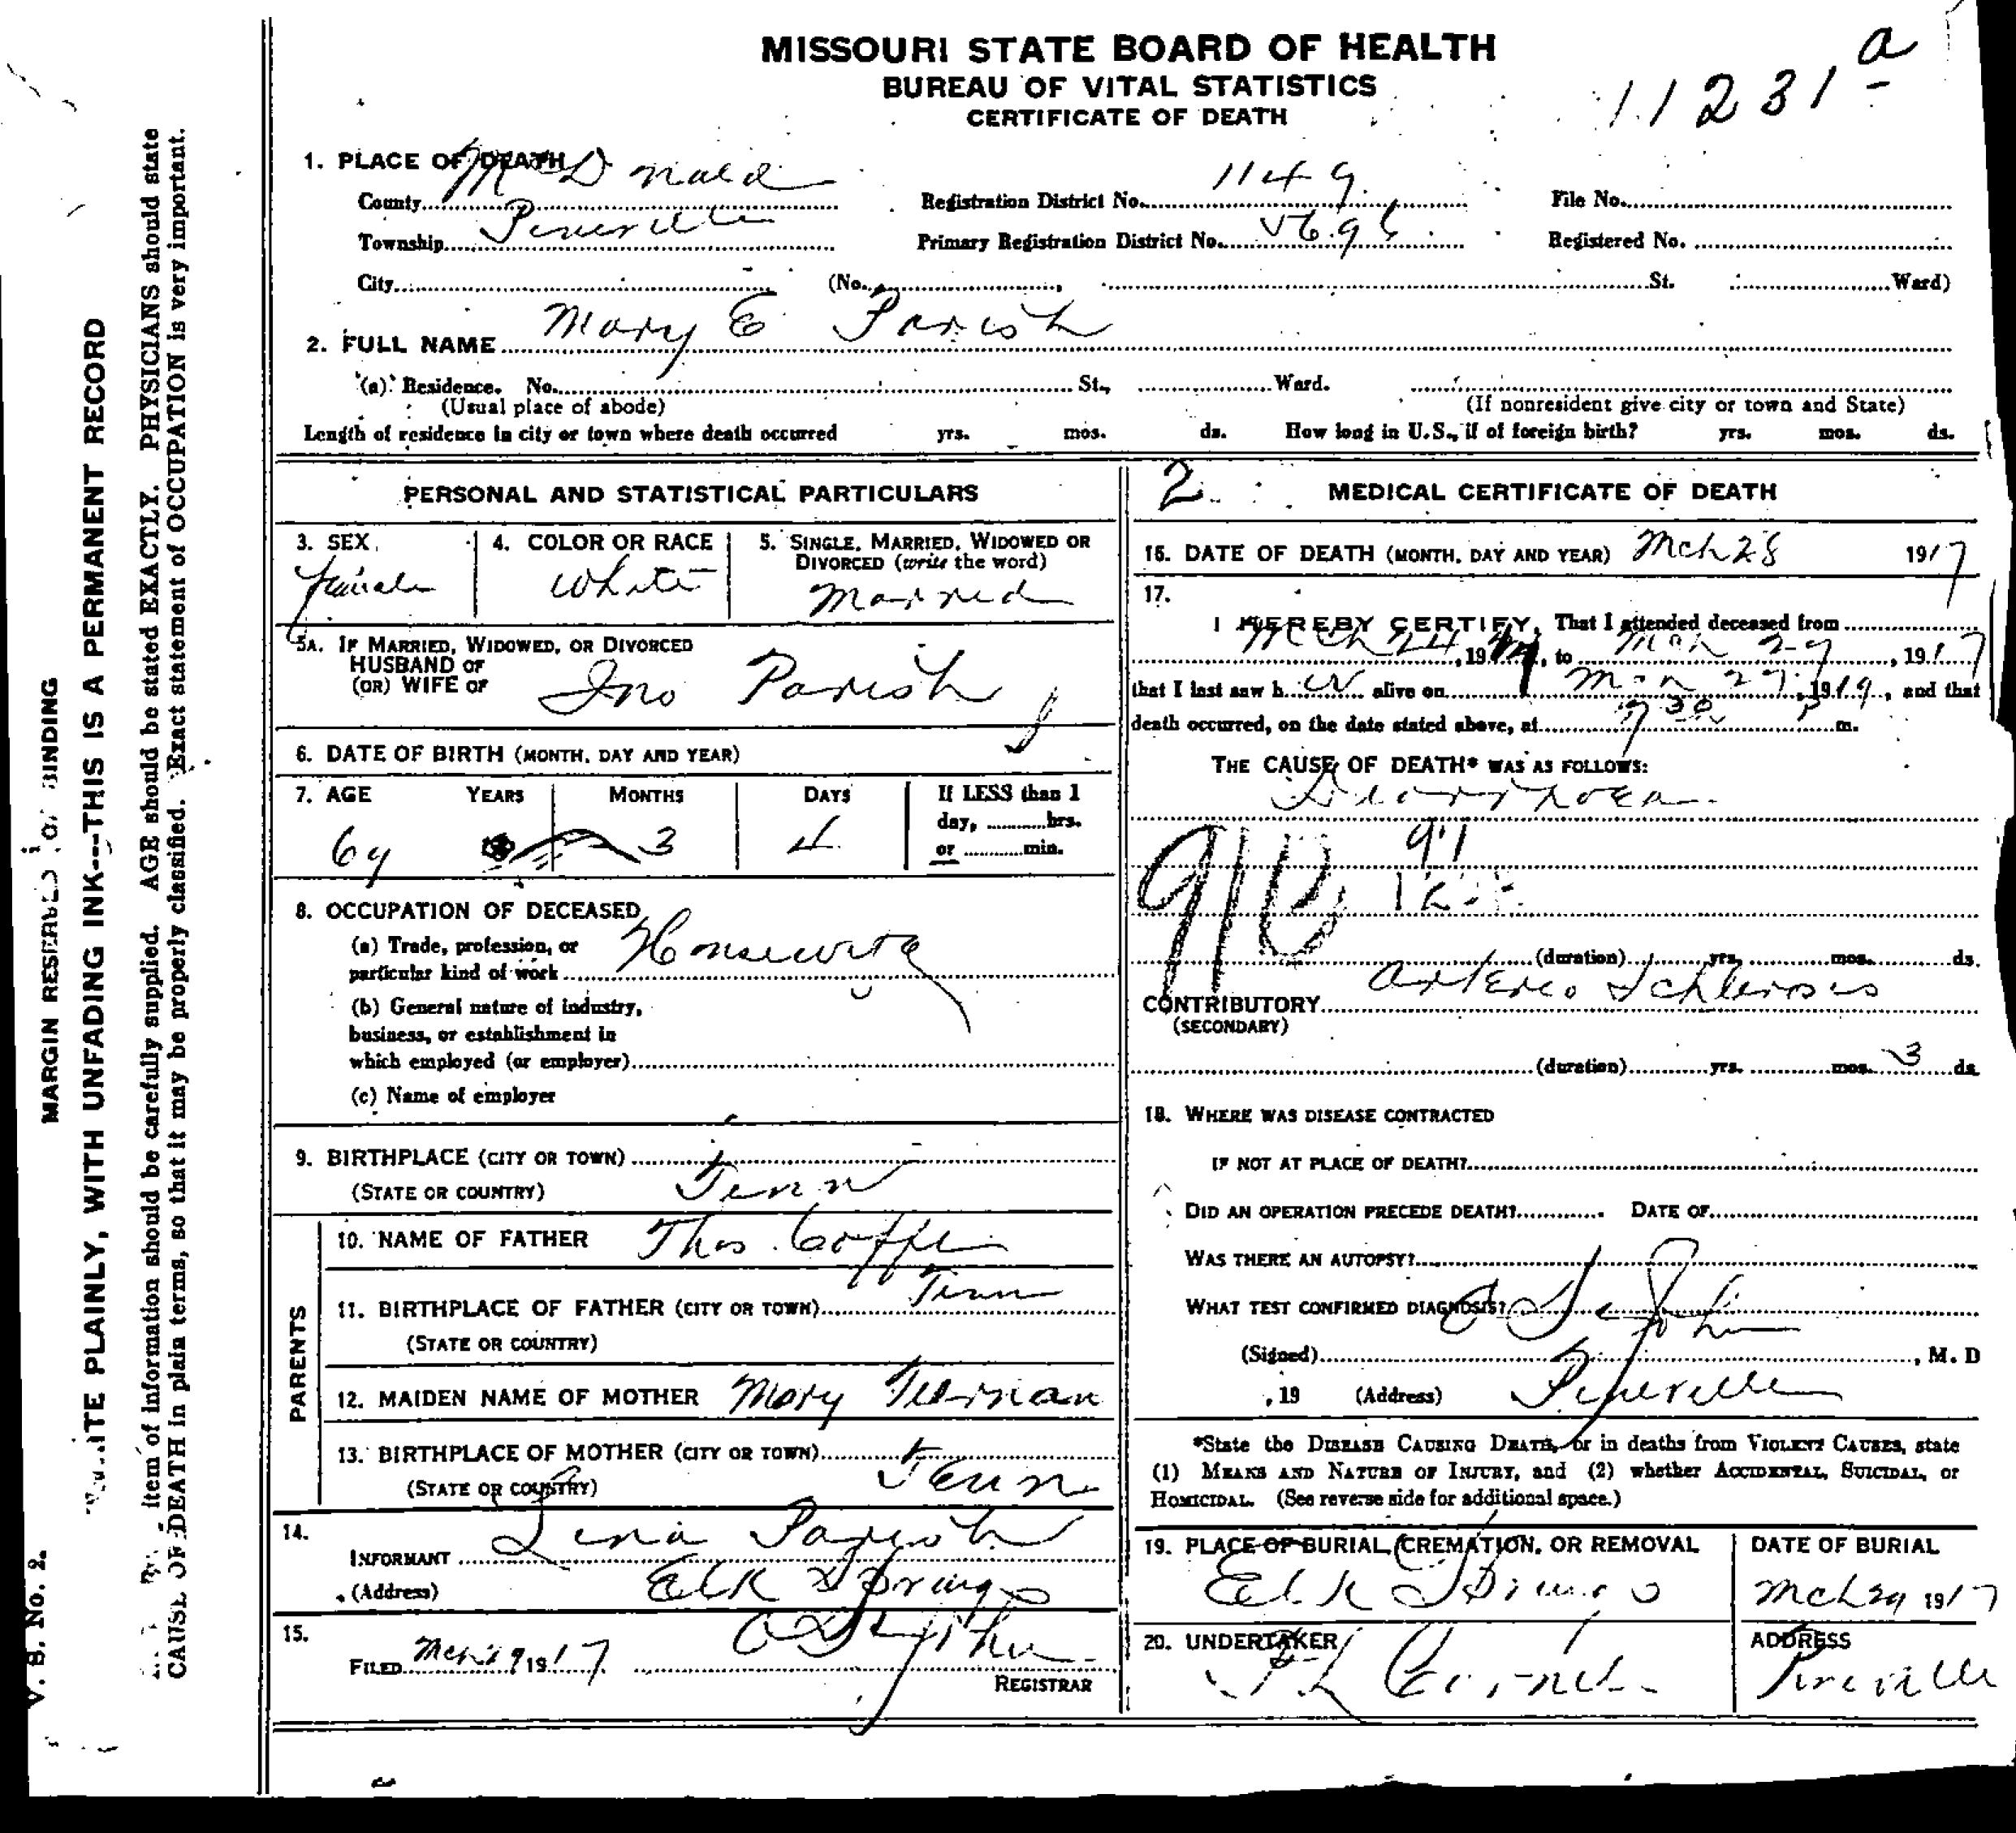 MISSOURI STATE BOARD OF HEALTH
BUREAU OF VITAL STATISTICS
CERTIFICATE OF DEATH
11231 a
1. PLACE OF DEATH
County McDonald Registration District No. 1149 File No.
Township Pineville Primary Registration District No. Registered No.
City (No. , St. Ward)
2. FULL NAME Mary E Parish
(a) Residence. No. St., Ward.
(Usual place of abode) (If nonresident give city or town and State)
Length of residence in city or town where death occurred yrs. mos. ds. How long in U.S., if of foreign birth? yrs. mos. ds.
PERSONAL AND STATISTICAL PARTICULARS
3. SEX 4. COLOR OR RACE 5. SINGLE, MARRIED, WIDOWED OR
DIVORCED (write the word)
female white Married
5A. IF MARRIED, WIDOWED, OR DIVORCED
HUSBAND OF
(OR) WIFE OF Jno Parish
6. DATE OF BIRTH (MONTH, DAY AND YEAR)
7. AGE YEARS MONTHS DAYS If LESS than 1
day, hrs.
or min.
3 4
8. OCCUPATION OF DECEASED
(a) Trade, profession, or
particular kind of work Housewife
(b) General nature of industry,
business, or establishment in
which employed (or employer)
(c) Name of employer
9. BIRTHPLACE (CITY OR TOWN)
(STATE OR COUNTRY) Tenn
PARENTS
10. NAME OF FATHER Thos.
11. BIRTHPLACE OF FATHER (CITY OR TOWN) Tenn
(STATE OR COUNTRY)
12. MAIDEN NAME OF MOTHER Mary
13. BIRTHPLACE OF MOTHER (CITY OR TOWN)
(STATE OR COUNTRY) Tenn
14.
INFORMANT Lena Parish
(Address) Elk Springs
15.
FILED 1917
REGISTRAR
2
MEDICAL CERTIFICATE OF DEATH
16. DATE OF DEATH (MONTH, DAY AND YEAR) Mch 28 1917
17.
I HEREBY CERTIFY, That I attended deceased from
Mch 24, 19 , to Mch 29, 1917
that I last saw her alive on 19 , and that
death occurred, on the date stated above, at 730 P m.
THE CAUSE OF DEATH* WAS AS FOLLOWS:
Diarrhoea
91
(duration) yrs. mos. ds.
CONTRIBUTORY Arterio Schlerosis
(SECONDARY)
(duration) yrs. mos. 3 ds.
18. WHERE WAS DISEASE CONTRACTED
IF NOT AT PLACE OF DEATH?
DID AN OPERATION PRECEDE DEATH? DATE OF
WAS THERE AN AUTOPSY?
WHAT TEST CONFIRMED DIAGNOSIS?
(Signed) , M. D
, 19 (Address) Pineville
*State the DISEASE CAUSING DEATH, or in deaths from VIOLENT CAUSES, state
(1) MEANS AND NATURE OF INJURY, and (2) whether ACCIDENTAL, SUICIDAL, or
HOMICIDAL. (See reverse side for additional space.)
19. PLACE OF BURIAL, CREMATION, OR REMOVAL DATE OF BURIAL
Elk Springs Mch 29 1917
20. UNDERTAKER ADDRESS
Pineville
V. S. No. 2.
MARGIN RESERVED FOR BINDING
WRITE PLAINLY, WITH UNFADING INK---THIS IS A PERMANENT RECORD
item of information should be carefully supplied. AGE should be stated EXACTLY. PHYSICIANS should state
CAUSE OF DEATH in plain terms, so that it may be properly classified. Exact statement of OCCUPATION is very important.